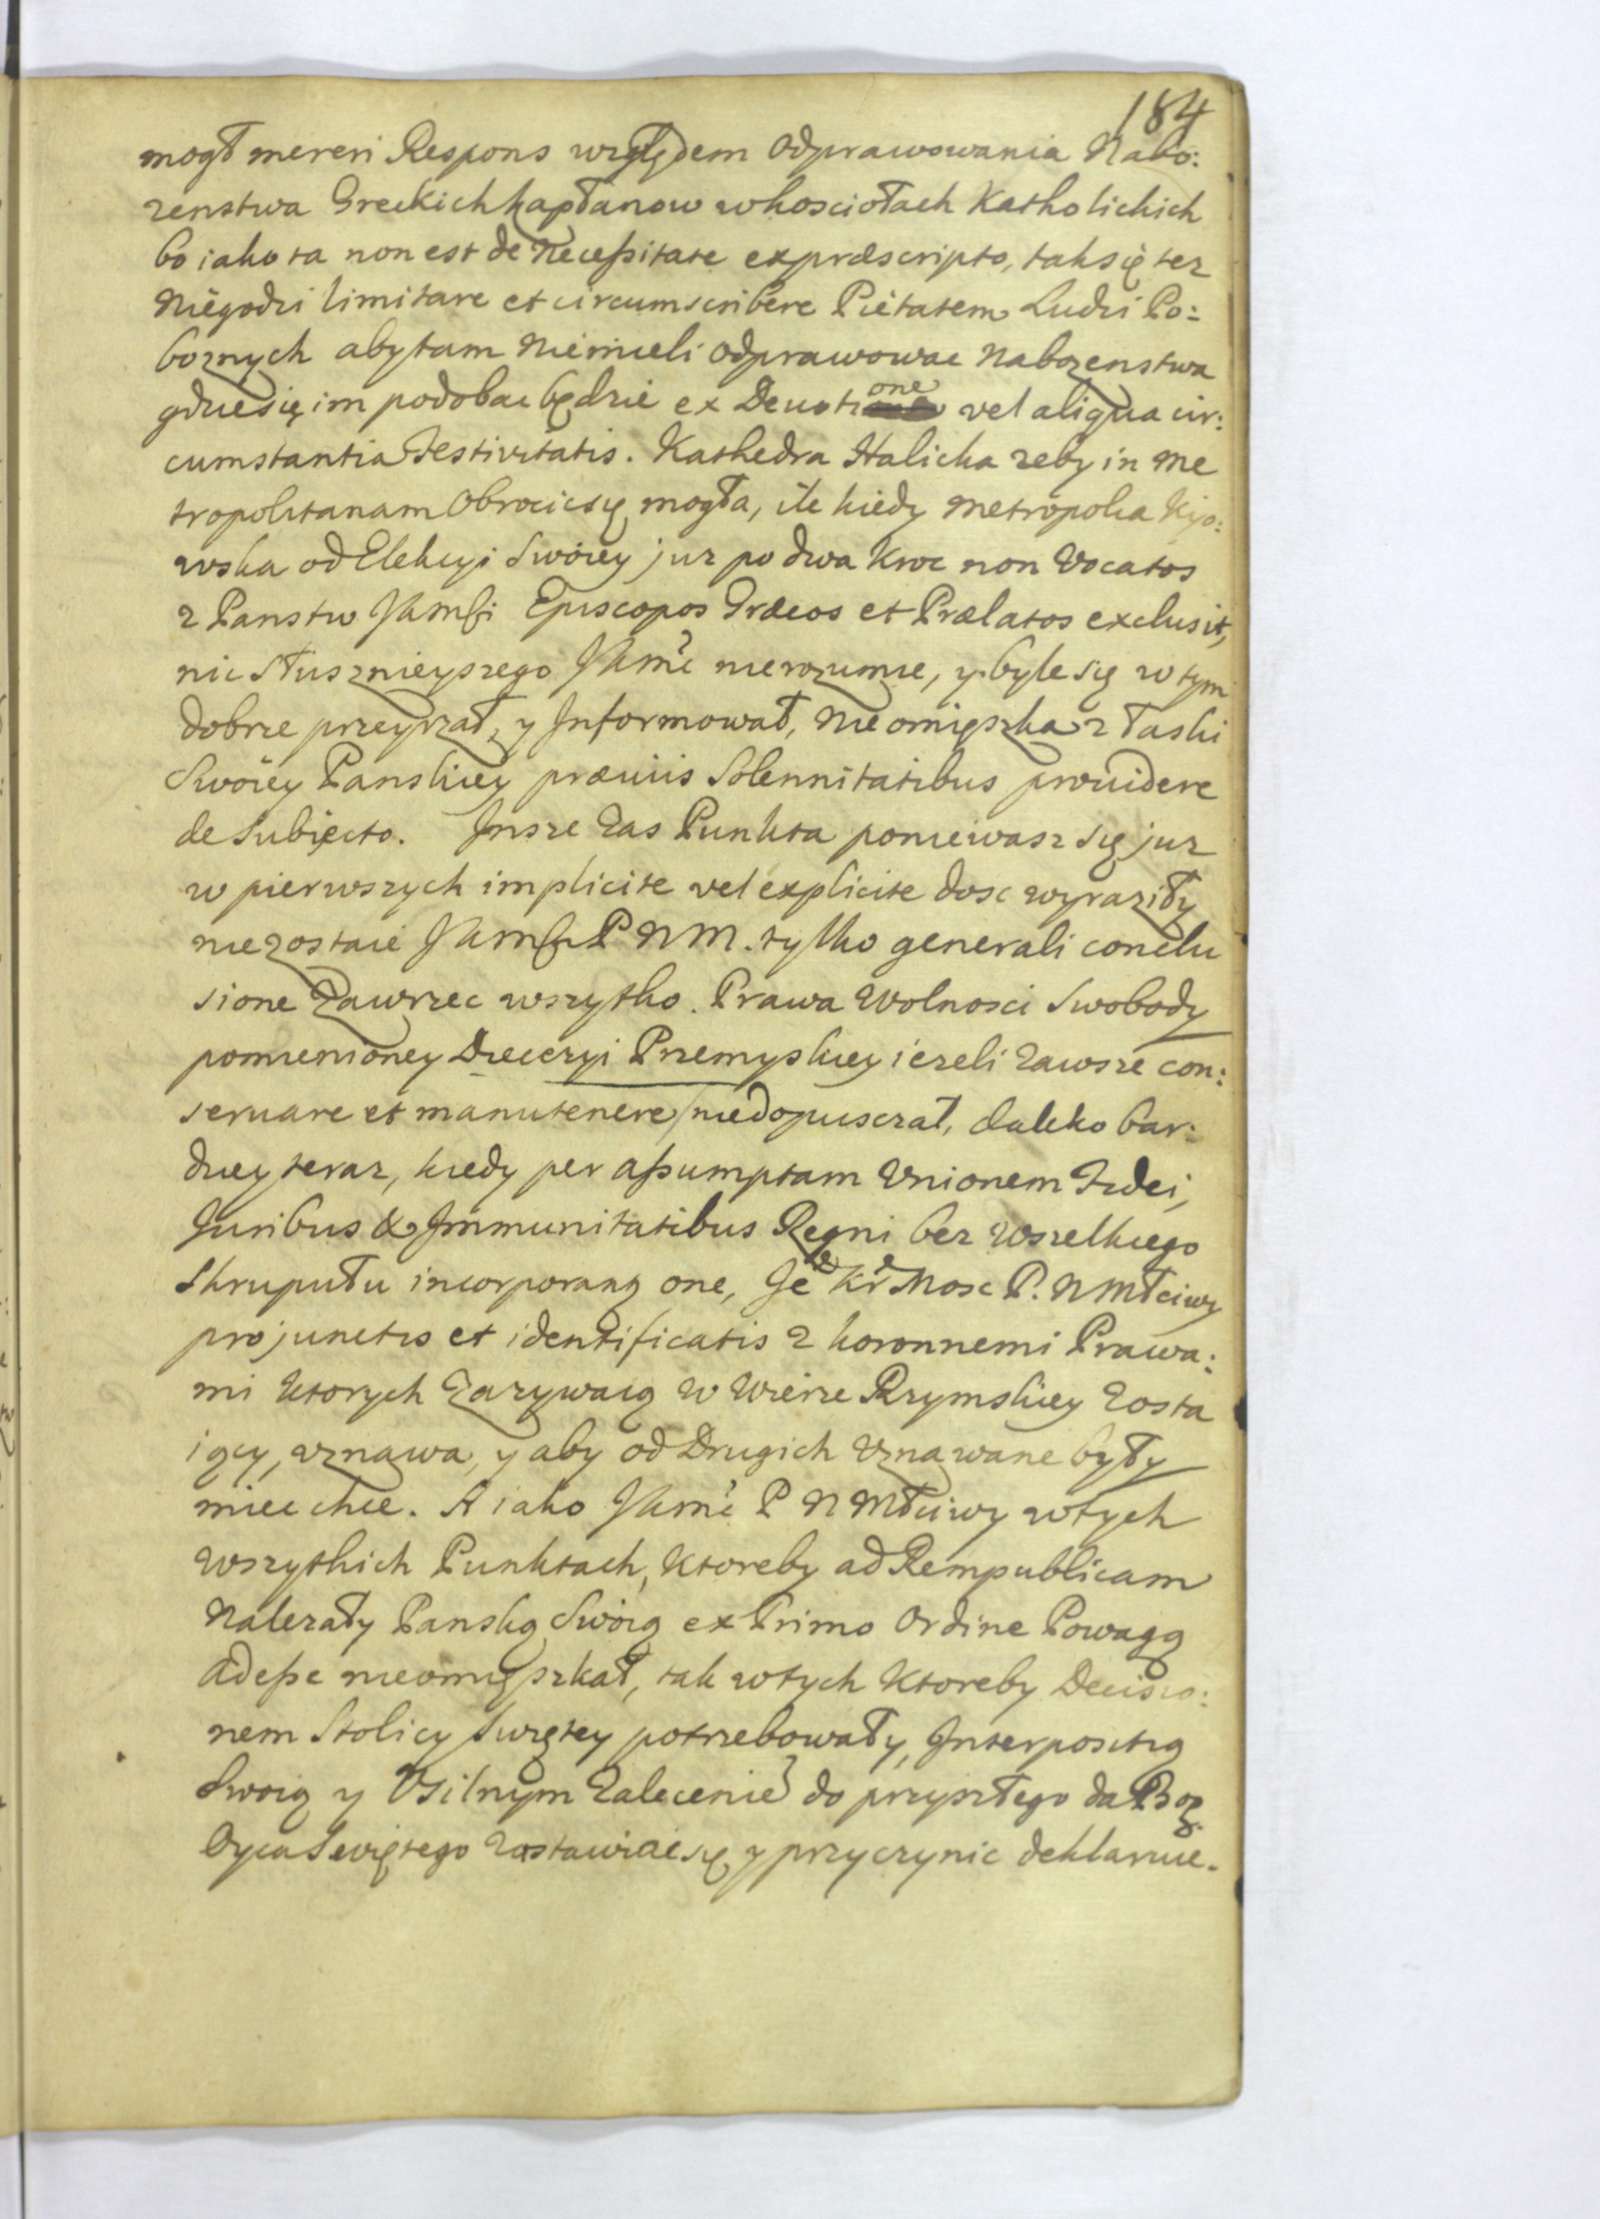 184
mogł mereri Respons względem Odprawowania Nabo:
zenstwa Greckich kapłanow w kosciołach Katholickich
bo iako ta non est de Necessitate ex præscripto, tak się tez
Niegodzi limitare et circumscribere Pietatem Ludzi Po:
boznych aby tam Niemieli Odprawowac Nabozenstwa
gdzie się im podobac będzie ex Deuotione vel aliqua cir:
cumstantia Festivitatis. Kathedra Halicka zeby in Me
tropolitanam Obrocic się mogła, ile kiedy Metropolia Kijo:
wska od Elekcyi Swoiey juz po dwa kroc non Vocatos
z Panstw JKMsci Episcopos Græcos et Prælatos exclusit,
nic słusznieyszego JKMć nierozumie, y byle się w tym
dobrze przeyrzał, y Informował, Nie omięszka z Łaski
Swoiey Panskiey præuiis Solennitatibus prouidere
de Subiecto. Insze Zas Punkta poniewasz się juz
w pierwszych implicite vel explicite dosc wyraziły
niezostaie JKMsci P N M. tylko generali conclu
sione Zawrzec wszytko. Prawa Wolnosci Swobody
pomienioney Dieceryi Przemyskiey iezeli Zawsze con:
seruare et manutenere niedopuszczał, daleko bar:
dziey teraz, kiedy per assumptam Vnionem Fidei,
Juribus & Immunitatibus Regni bez wszelkiego
Skrupułu incorporauą one, Je Kr Mosc P. N Młciwy
pro junctis et identificatis z koronnemi Prawa:
mi Ktorych Zazywaią w Wierze Rzymskiey Zosta
iący, vznawa, y aby od Drugich Vznawane były
miec chce. A iako JKMć P N Młciwy w tych
wszytkich Punktach, Ktoreby ad Rempublicam
Nalezały Panską Swoią ex Primo Ordine Powagą
adesse nieomięszkał, tak w tych Ktoreby Decisio:
nem Stolicy Swiętey potrzebowały, Interpositią
Swoią y Vsilnym Zalecenie do przyszłego da Bog
Oyca Swiętego Zastawiac się y przyczynic deklaruie.